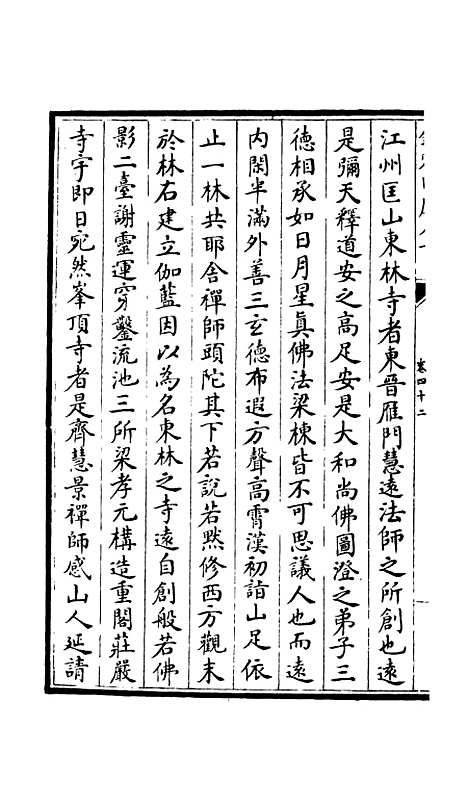 卷四十二
江州匡山東林寺者東晉雁門慧遠法師之所創也遠
是彌天釋道安之高足安是大和尚佛圖澄之弟子三
德相承如日月星真佛法梁棟皆不可思議人也而遠
内閑半滿外善三玄德布遐方聲高霄漢初詣山足依
止一林共耶舍禪師頭陀其下若說若黙修西方觀末
於林右建立伽藍因以為名東林之寺遠自創般若佛
影二臺謝靈運穿鑿流池三所梁孝元構造重閣莊嚴
寺宇即日宛然峯頂寺者是齊慧景禪師感山人延請